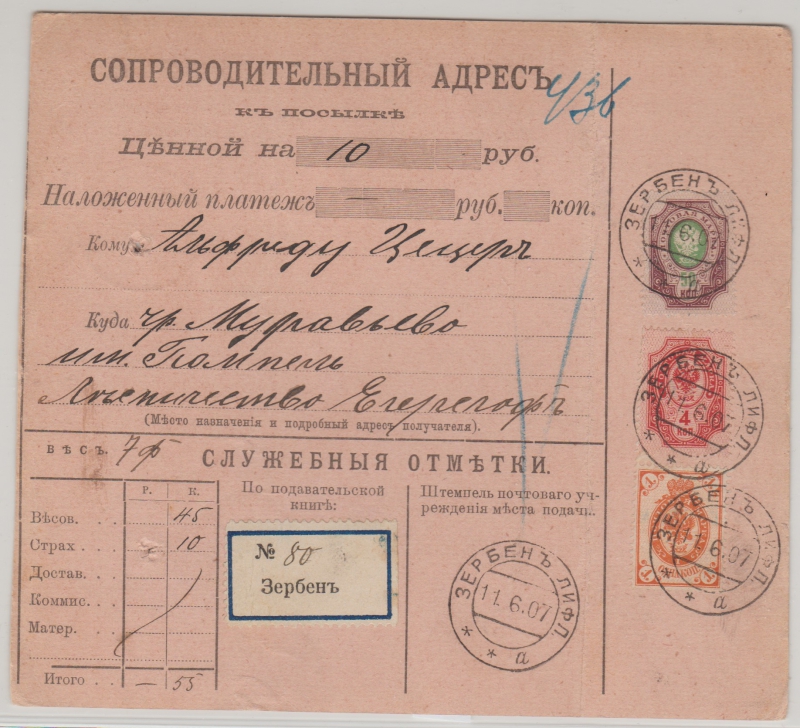 СОПРОВОДИТЕЛЬНЫЙ АДРЕСЪ
436
КЪ ПОСЫЛКѢ
Цѣнной на 10 руб.
Наложенный платежъ — руб. коп.
Кому: Альфреду Цецеръ
Куда чр. Муравьево
им. Помпель
Лѣсничество Егерсгофъ
(Мѣсто назначенія и подробный адресъ получателя).
ВѢСЪ. 7 ф
СЛУЖЕБНЫЯ ОТМѢТКИ.
Р. К.
Вѣсов. 45
Страх . . . 10
Достав. . .
Коммис. . .
Матер. . .
Итого . . . — 55
По подавательской
книгѣ:
№ 80
Зербенъ
Штемпель почтоваго уч-
режденія мѣста подачи.
ЗЕРБЕНЪ ЛИФЛ.
11.6.07
* а *
ЗЕРБЕНЪ ЛИФЛ.
ПОЧТОВАЯ МАРКА
50
КОП
ЗЕРБЕНЪ ЛИФЛ.
4
КОП
* а *
ЗЕРБЕНЪ ЛИФЛ.
11.6.07
1
* а *